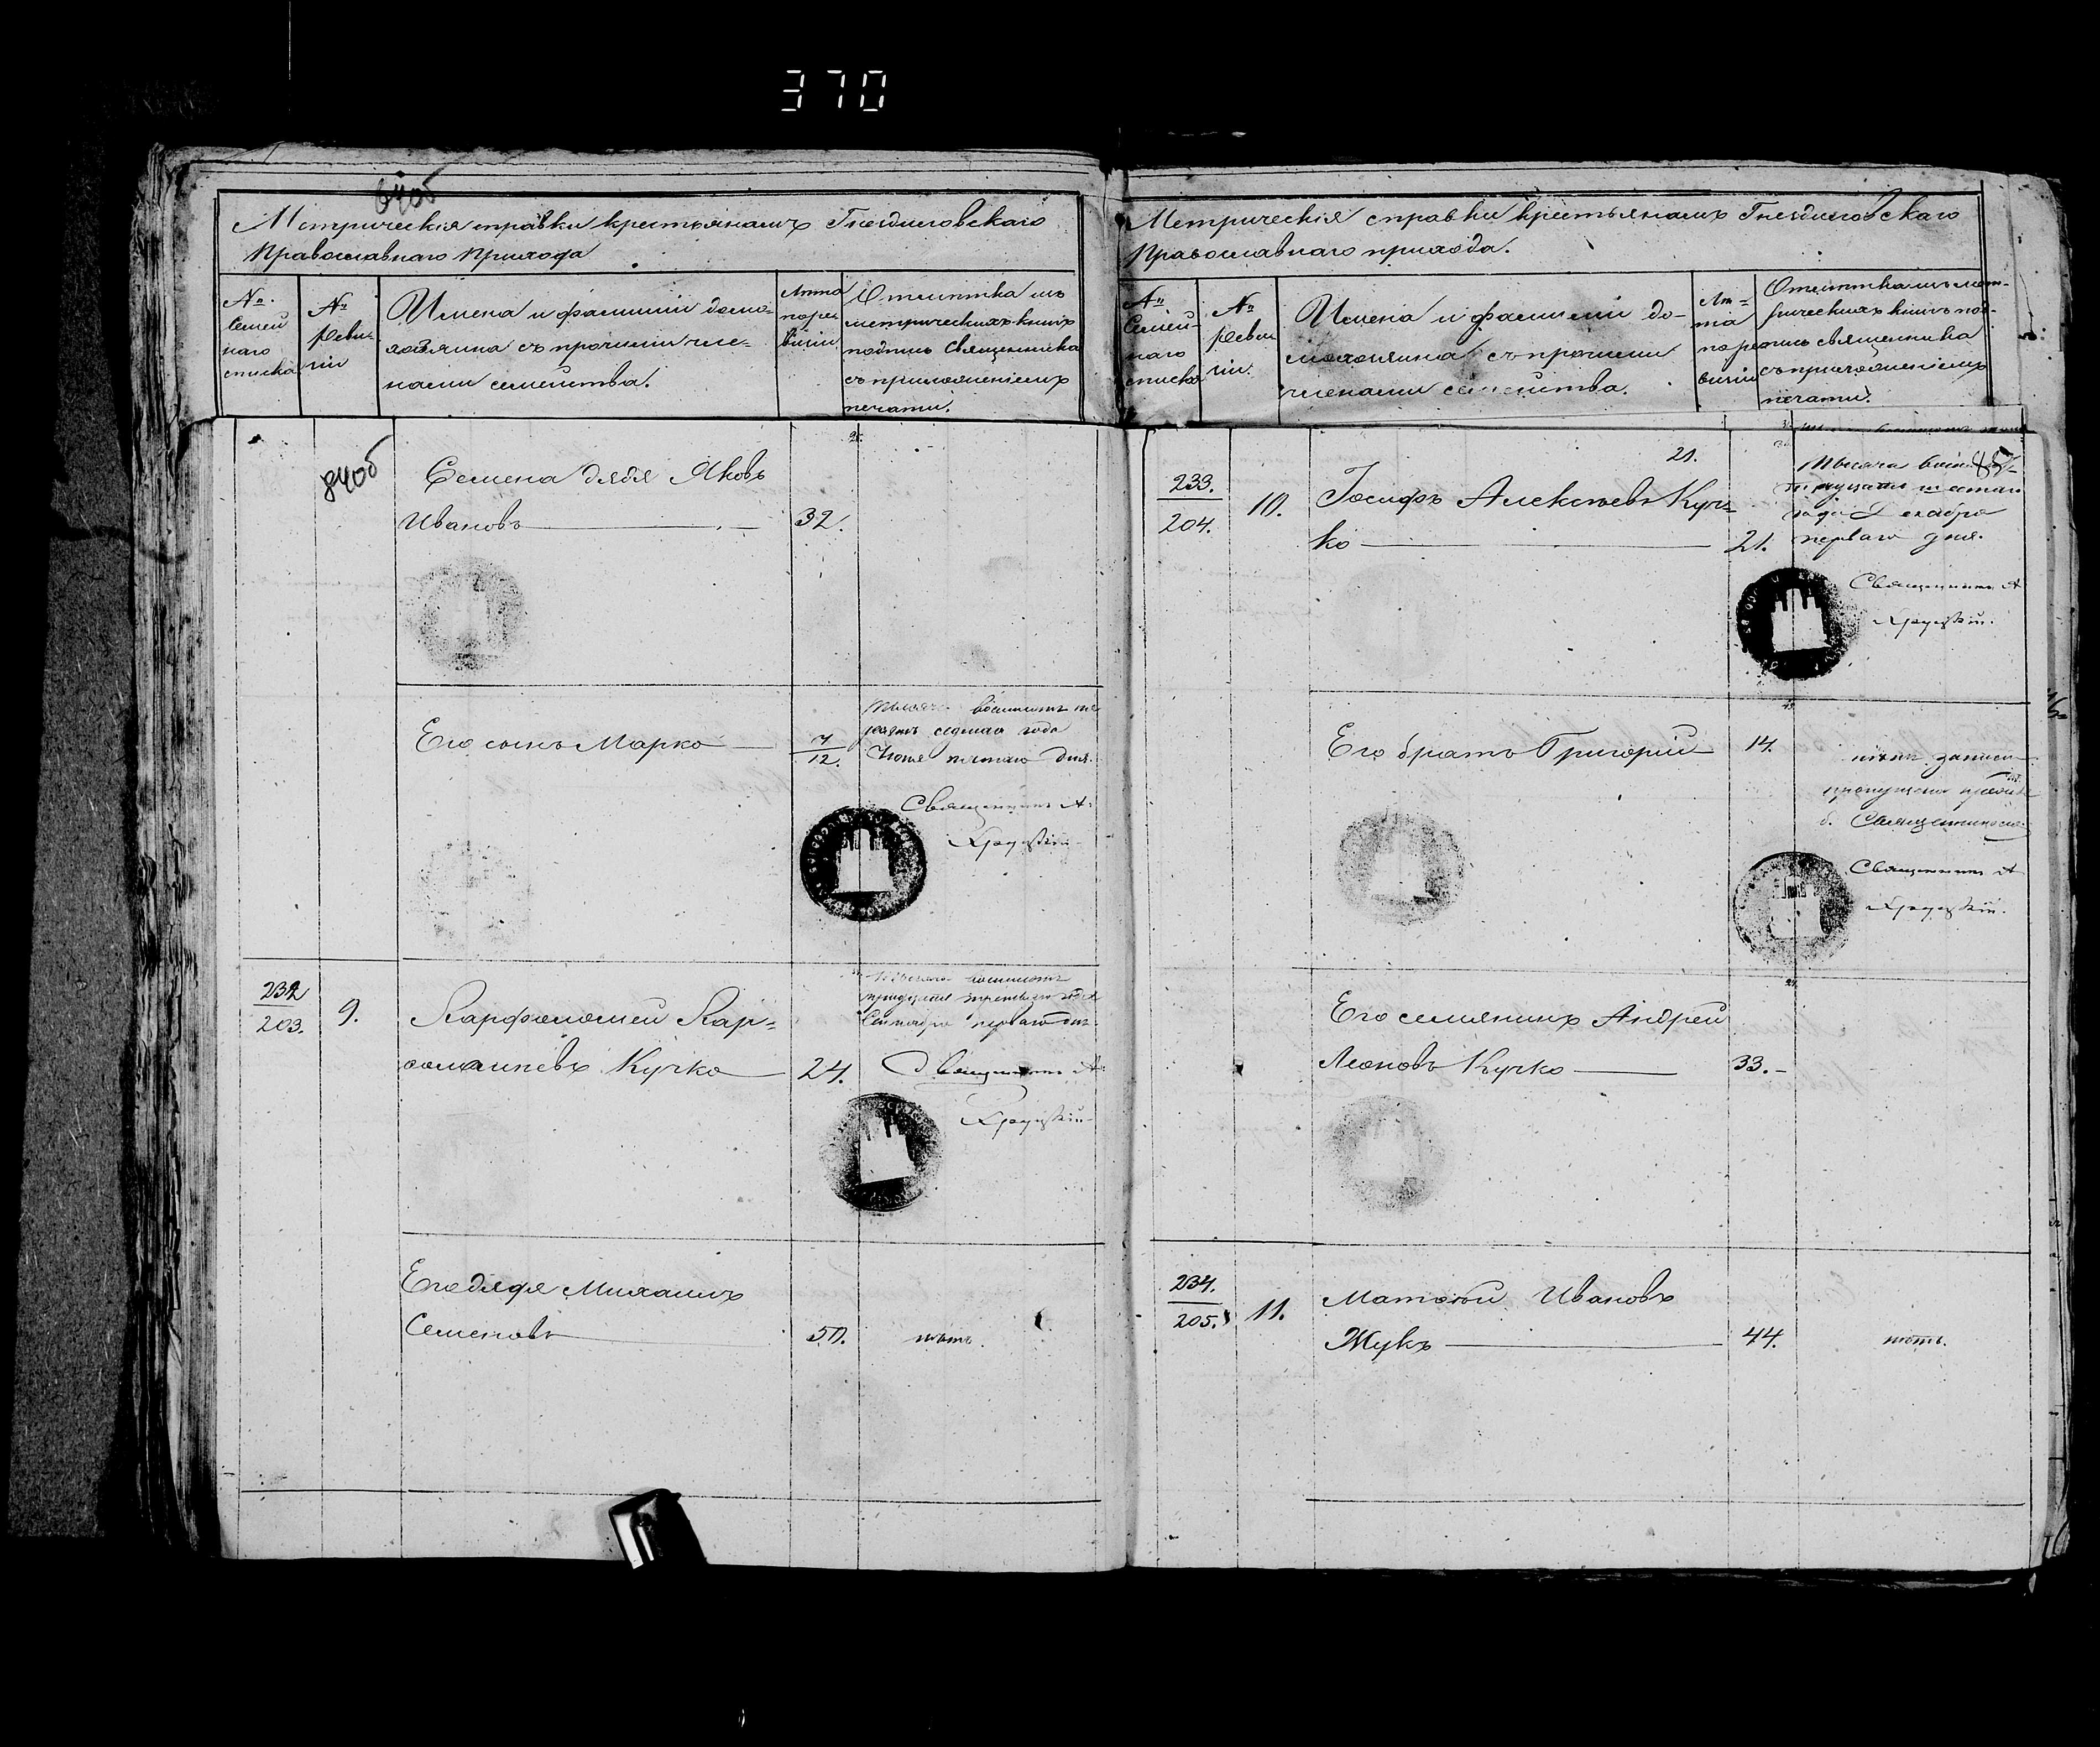 370
84об
Метрическія справки крестьянамъ Гнездиловскаго
Православнаго Прихода
№
Семей
наго
списка
№
Реви-
зіи
Имена и фамиліи домо-
хозяина съ прочими чле-
нами семейства.
Лета
по ре
визіи
Отметка изъ
метрическихъ книгъ
подпись Священника
съ приложеніемъ
печати.
84об
Семена дядя Яковъ
Ивановъ
32.
Его сынъ Марко
7/12.
Тысяча восьмисотъ
седмаго года
Іюня пятаго дня.
Священникъ А.
232
203.
9.
Варфоломей Вар-
Кучко
24.
Тысяча восьмисотъ
тридцать третьяго года
Сентября перваго дня.
Священникъ А.
Его дядя Михаилъ
Семеновъ
50.
нѣтъ.
Метрическія справки крестьянамъ Гнездиловскаго
Православнаго прихода.
№
Семей-
наго
списка
№
Ревизіи.
Имена и фамиліи до-
мохозяина съ прочими
членами семейства.
Ле-
та
по ре
визіи
Отметка изъ мет-
рическихъ книгъ под-
пись священника
съ приложеніемъ
печати.
233.
204.
10.
21.
Іосифъ Алексѣевъ Куч-
ко
21.
85
Тысяча
тридцать шестаго
года Декабря
перваго дня.
Священникъ А
Его братъ Григорій
14.
записи
пропущена
б. Священникомъ
Священникъ А
Его семянинъ Андрей
Леоновъ Кучко
33.
234.
205.
11.
Матвѣй Ивановъ
Жукъ
44.
нѣтъ.